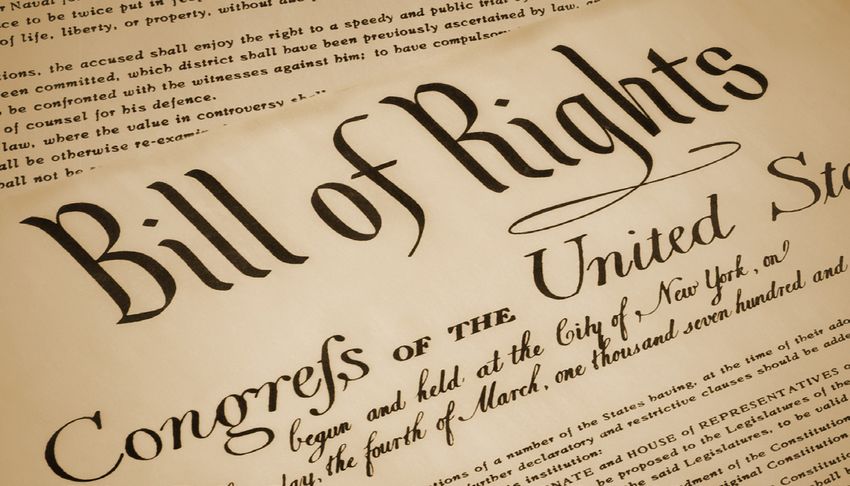 Naval
ce to be twice put in
of life, liberty, or property, without
tions, the accused shall enjoy the right to a speedy and public trial
een committed, which district shall have been previously ascertained by law,
be confronted with the witnesses against him; to have compulsor
of counsel for his defence.
law, where the value in controversy shall
all be otherwise re-exami
hall not be
Bill of Rights
Congreſs OF THE United Sta
begun and held at the City of New York, on
day, the fourth of March, one thousand seven hundred and
tions of a number of the States having, at the time of their ado
further declaratory and restrictive clauses should be adde
institution:
NATE and HOUSE of REPRESENTATIVES o
be proposed to the Legislatures of the
the said Legislatures, to be valid
ndment of the Constitution
original Constitution